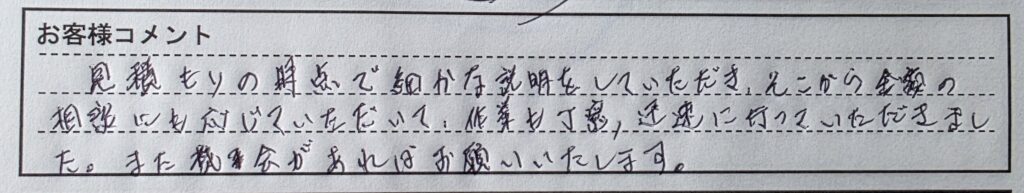 お客様コメント
見積もりの時点で細かな説明をしていただき、そこから金額の
相談にも応じていただいて、作業も丁寧,迅速に行っていただきまし
た。また機会があればお願いいたします。